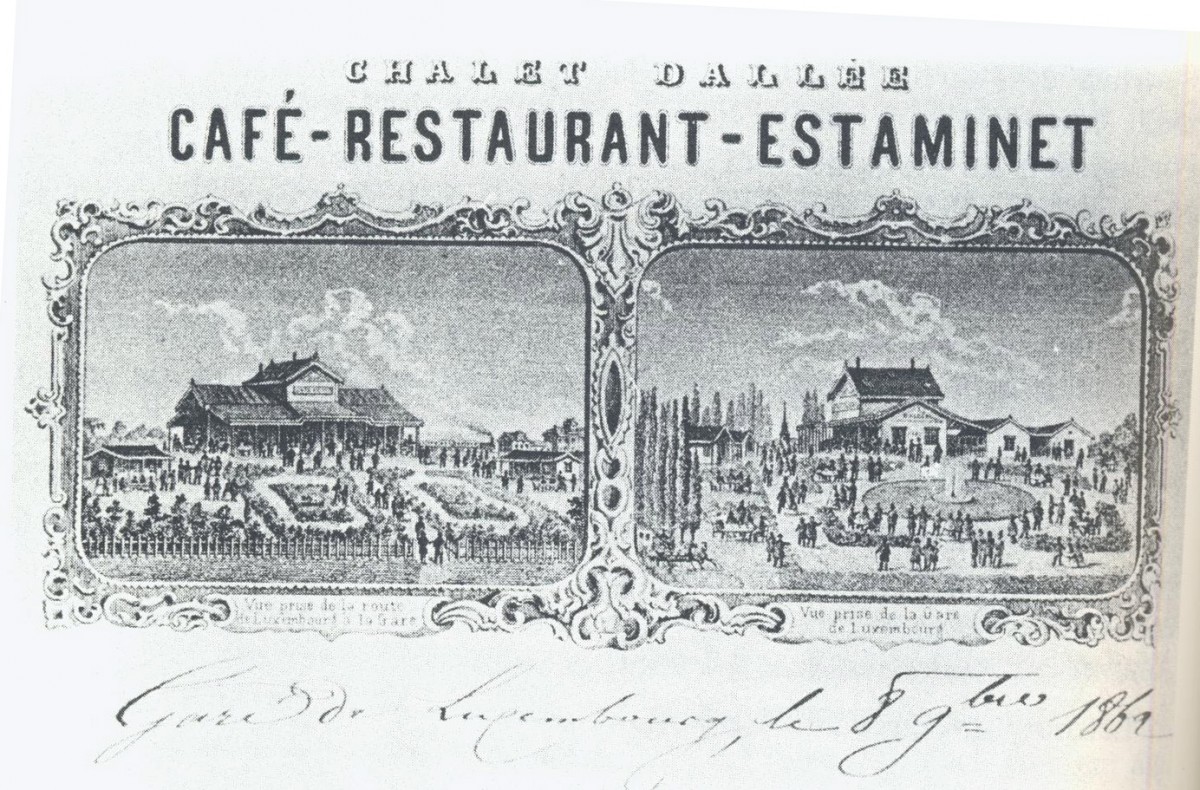 CHALET DALLÉE
CAFÉ-RESTAURANT-ESTAMINET
Vue prise de la route
de Luxembourg à la Gare
Vue prise de la Gare
de Luxembourg
Gare de Luxembourg, le 8 9bre 1862